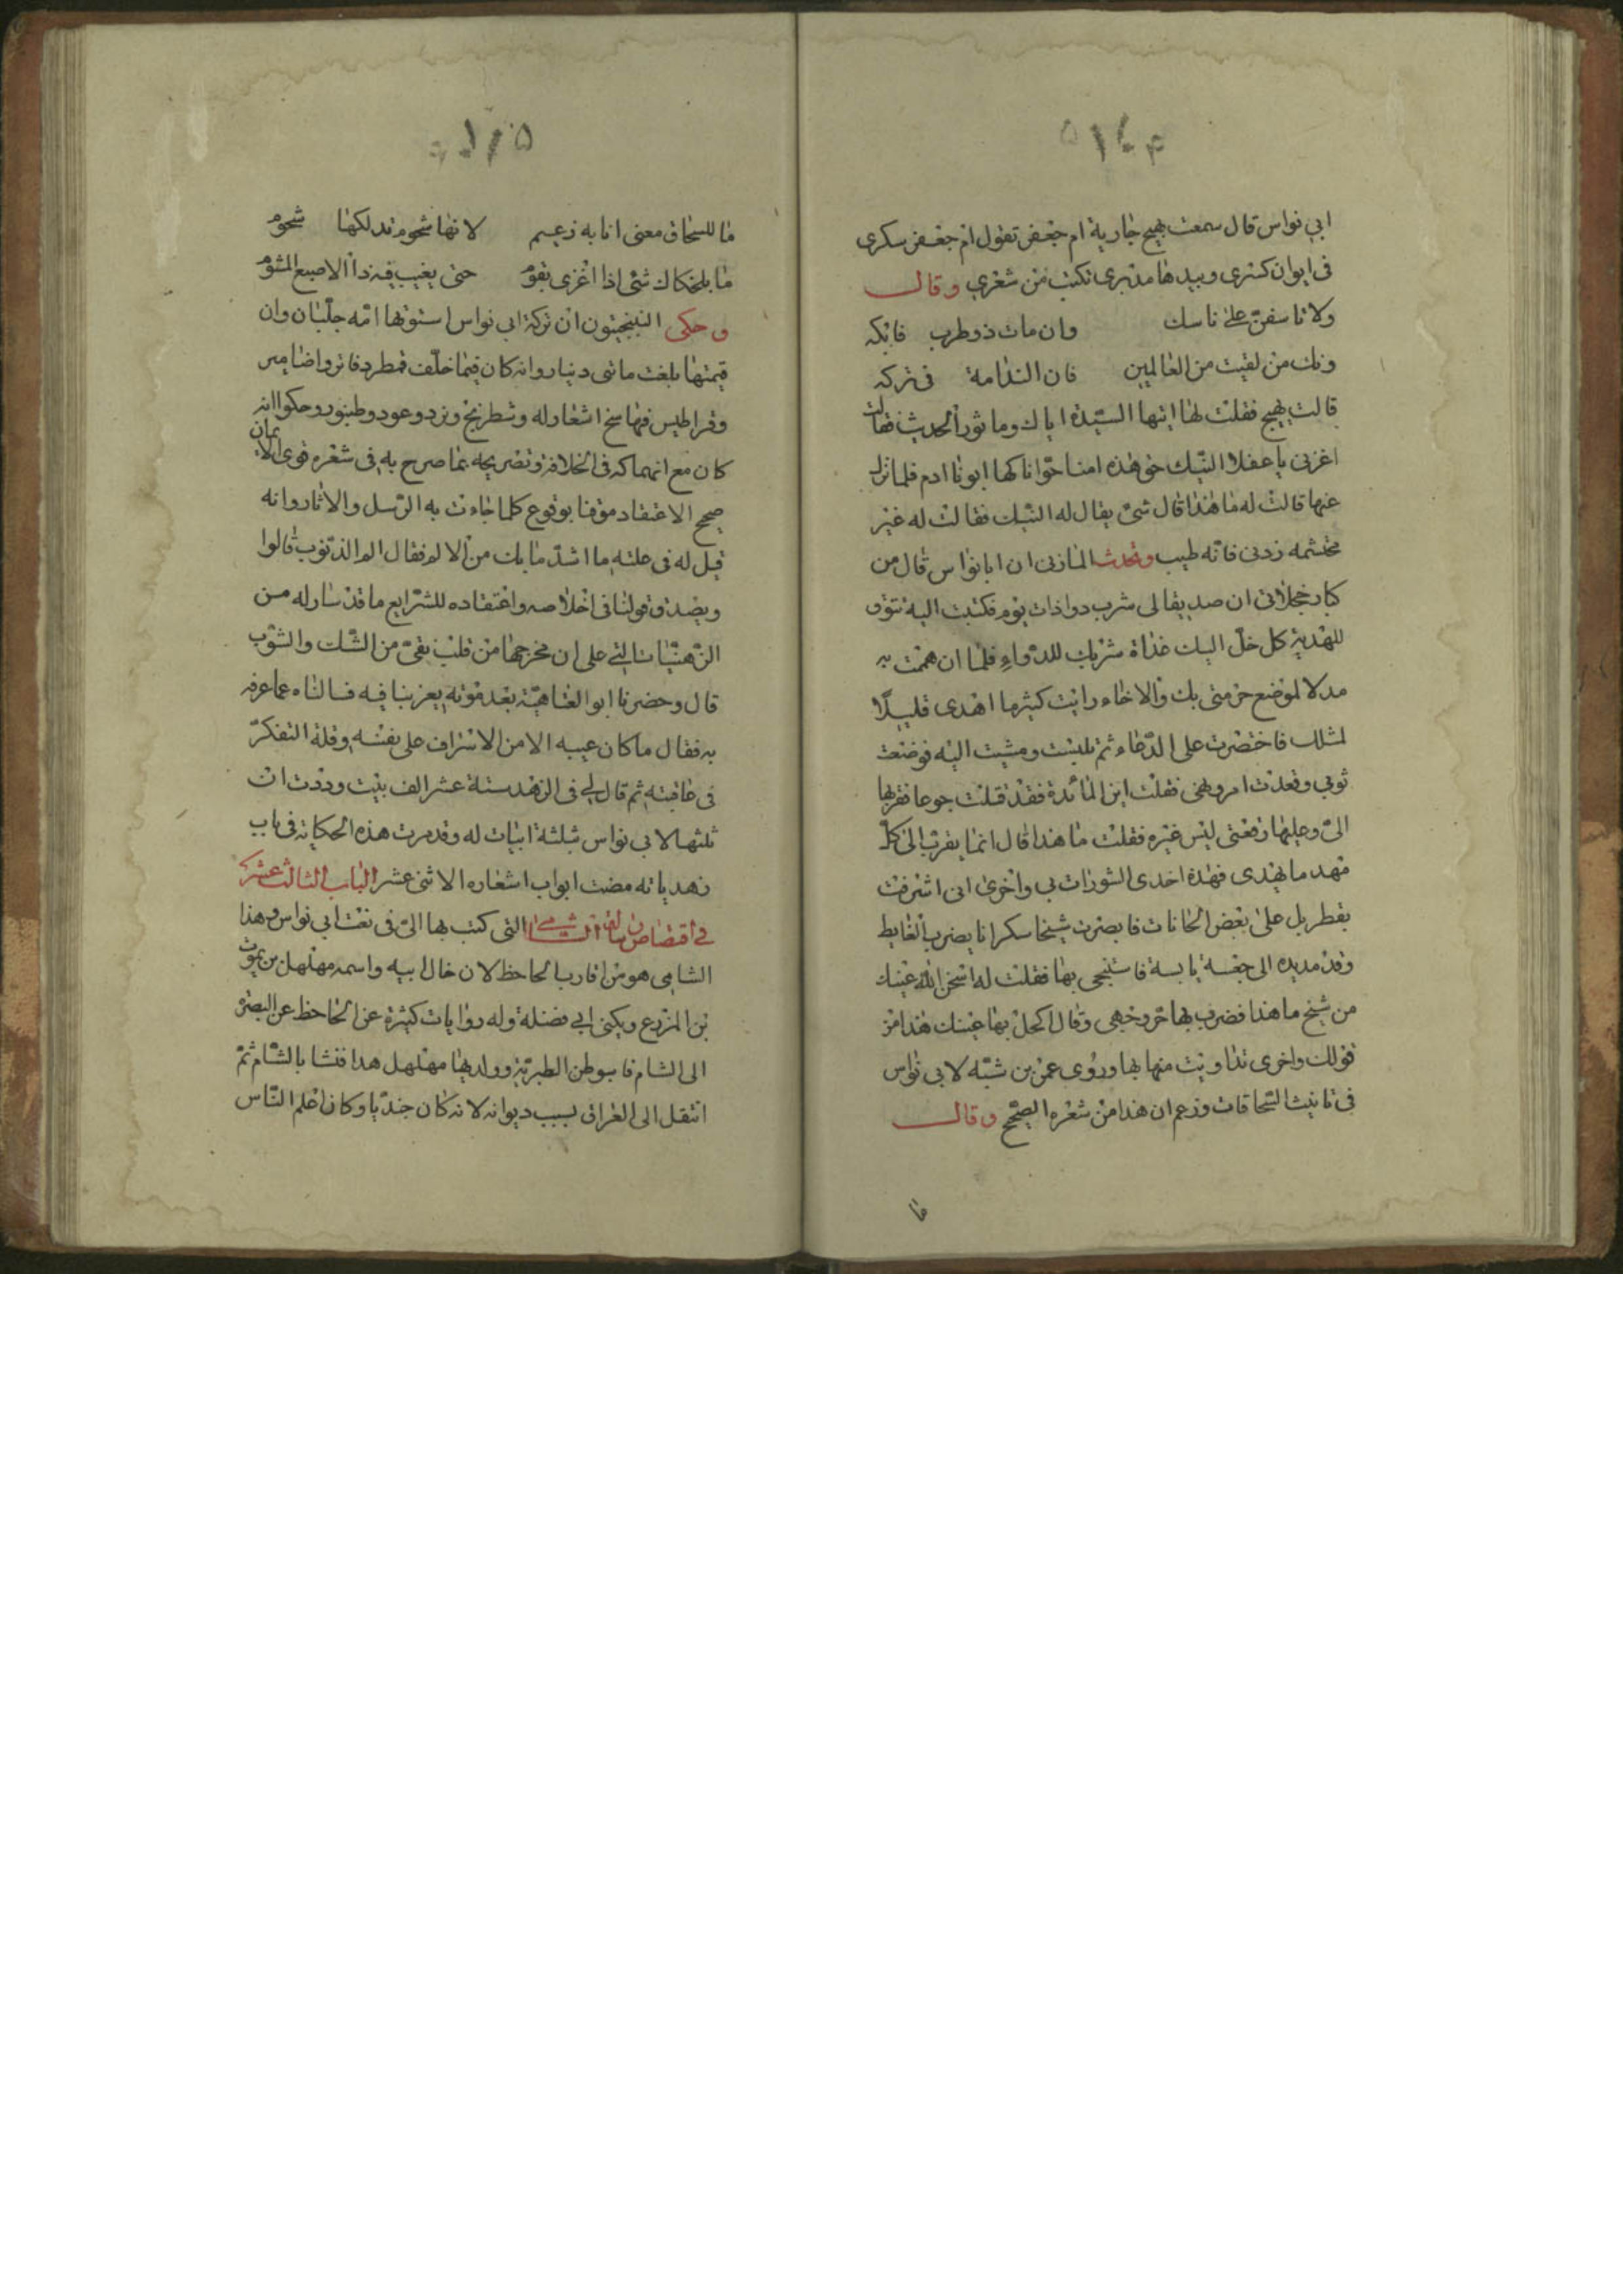 ابي نواس قال سمعت بهيج جارية ام جعفر تقول ام جعفر سكرى
فى ايوان كسرى وبيدها مدرى تكتب من شعري وقال
ولا تاسفن على ناسك وان مات ذو طرب فابكه
ونك من لقيت من العالمين فان الندامة فى تركه
قالت بهيج فقلت لها ايتها السيدة اياك وماثور الحديث فقالت
اغربى يا عفلا النيك حق هذه امنا حوا ناكها ابونا ادم فلما نزل
عنها قالت له ما هذا قال شئ يقال له النيك فقالت له غير
محتشمه زدنى فانه طيب وتحدث المازنى ان ابا نواس قال من
كبار خجلاتى ان صديقا لى شرب دوا ذات يوم فكتبت اليه تنوق
للهدية كل خل اليك غداة شربك للدواء فلما ان هممت به
مدلا لموضع حرمتى بك والاخاء رايت كثير ما اهدى قليلا
لمثلك فاختصرت على الدعاء ثم تلبست ومشيت اليه فوضعت
ثوبي وقعدت فقلت اين المائدة فقد قلت جوعا فقربها
الى وعليها رقعتى ليس غيره فقلت ما هذا قال انما يقرب الى كل
مهد ما يهدى فهذه احدى السورات بى واخرى انى اشرفت
بقطربل على بعض الحانات فابصرت شيخا سكرانا يضرب الغايط
وقد مد يده الى جعسة يابسة فاستنجى بها فقلت له اسخن الله عينك
من شيخ ما هذا فضرب بها حر وجهى وقال اكحل بها عينك هذا من
قولك واخرى تداويت منها بها وروى عمر بن شبه لابى نواس
فى تانيث السحاقات وزعم ان هذا من شعره الصحيح وقال
ما
ما للسحاق معنى انا به زعيم لانها شحوم تدلكها شحوم
ما بلحكاك شئ اذا اغرى يقوم حتى يغيب فيه ذا الاصبع المشوم
وحكى النيبختيون ان تركة ابى نواس استوتها امه جلبان وان
قيمتها بلغت مائتى دينار وانه كان فيما خلف قمطر دفاتر واضامير
وقراطيس فيها نسخ اشعار له وشطرنج ونرد وعود وطنبور وحكوا انه
كان مع انهماكه فى الخلافة وتصريحه بما صرح به فى شعره قوى الايمان
صحيح الاعتقاد موقنا بوقوع كلما جاءت به الرسل والاثار وانه
قيل له فى علته ما اشد ما بك من الالم فقال الم الذنوب قالوا
ويصدق قولنا فى اخلاصه واعتقاده للشرايع ما قد سار له من
الزهديات التى على ان مخرجها من قلب نقى من الشك والشوب
قال وحضرنا ابو العتاهية بعد موته يعزينا فيه فسالناه عما عرفه
به فقال ما كان عيبه الا من الاسراف على نفسه وقلة التفكر
فى عاقبته ثم قال لي فى الزهد ستة عشر الف بيت وددت ان
ثلثها لابى نواس بثلثة ابيات له وقد مرت هذه الحكاية فى باب
زهدياته مضت ابواب اشعاره الاثنى عشر الباب الثالث عشر
فى اقتصاص الشامى التى كتب بها الى فى نعت ابى نواس وهذا
الشامى هو من اقارب الجاحظ لان خال ابيه واسمه مهلهل بن يموت
بن المزرع ويكنى ابى فضلة وله روايات كثيرة عن الجاحظ عن البصرة
الى الشام فاستوطن الطبرية وولد بها مهلهل هذا فنشا بالشام ثم
انتقل الى العراق لسبب ديوانه لانه كان جنديا وكان اعلم الناس